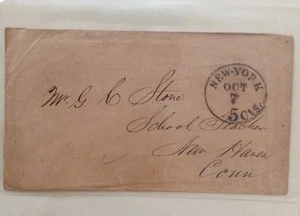 NEW-YORK
OCT
7
5 cts.
Mr. G C Stone
School Teacher
New Haven
Conn